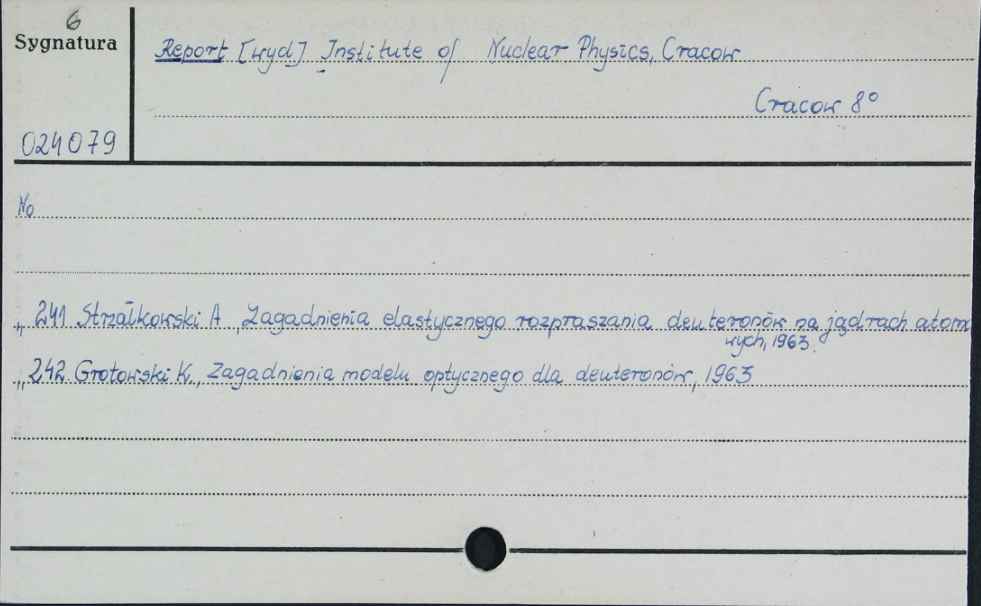 6
Sygnatura
Report [wyd] Institute of Nuclear Physics, Cracow
Cracow 8°
024079
No
„ 241 Strzałkowski A , Zagadnienia elastycznego rozpraszania deuteronów na jądrach atomo
wych, 1963.
„ 242 Grotowski K., Zagadnienia modelu optycznego dla deuteronów, 1963